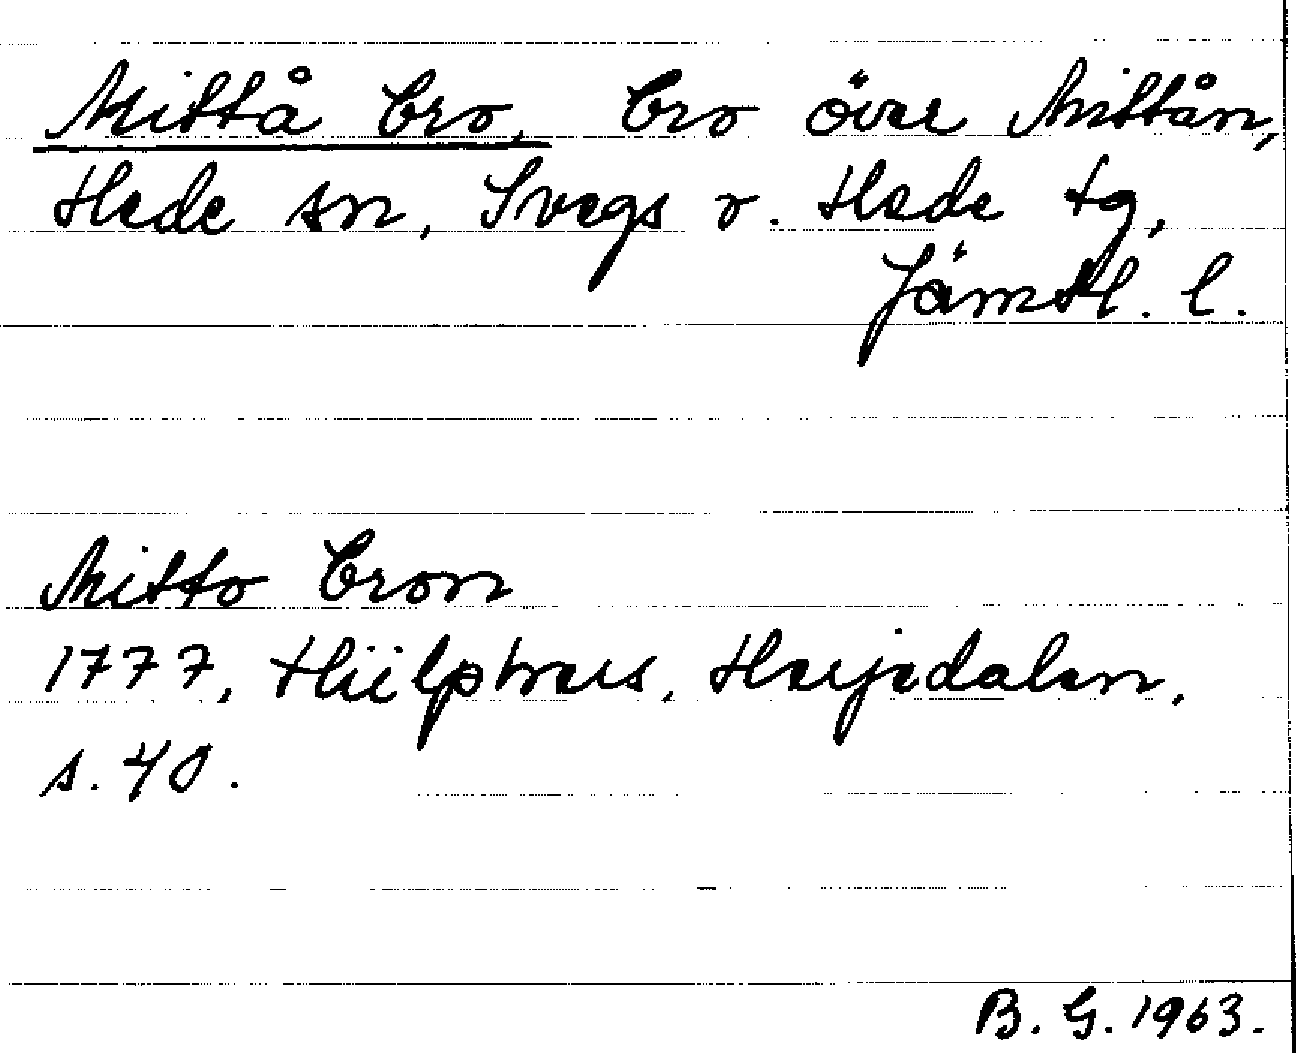 Mittå bro, bro över Mittån,
Hede sn, Svegs o. Hede tg,
Jämtl. l.
Mitto bron
1777, Hülphers, Herjedalen,
s. 40.
B. G. 1963.